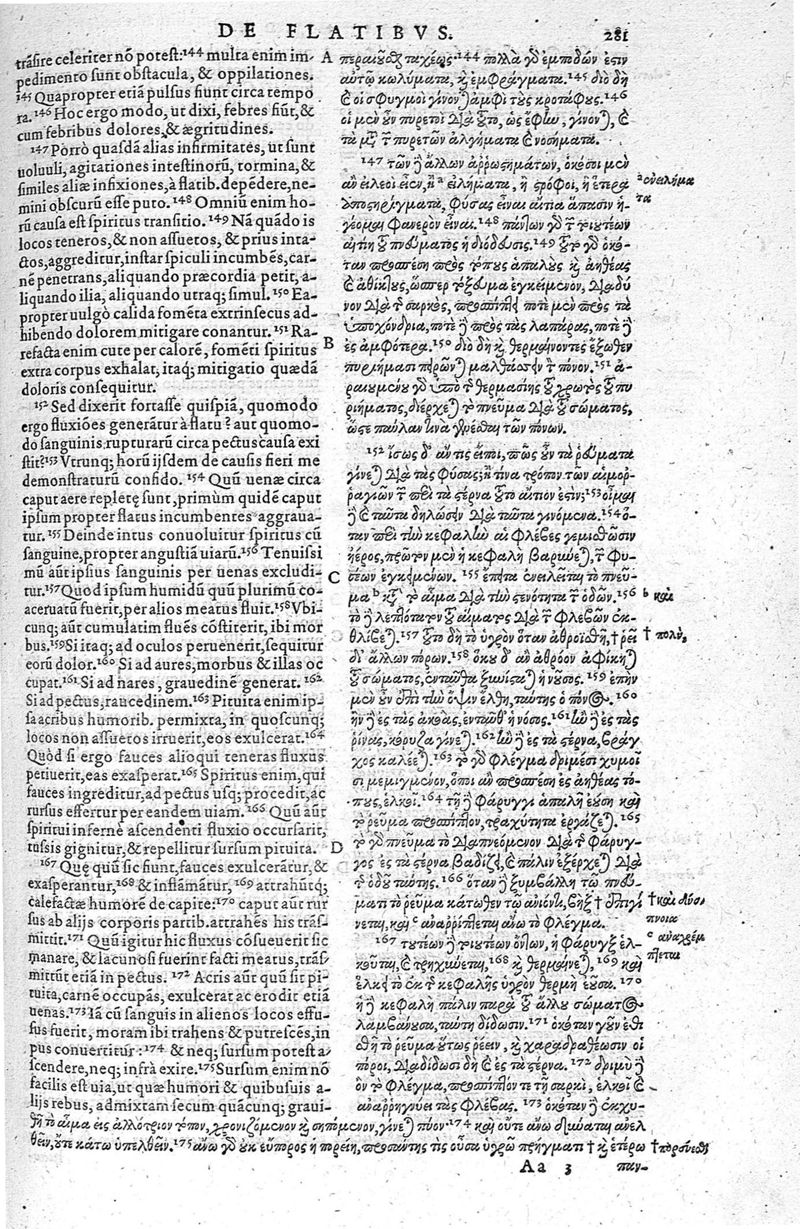 DE FLATIBVS.
281
trãsire celeriter nõ potest:144 multa enim im-
pedimento sunt obstacula, & oppilationes.
145 Quapropter etiã pulsus fiunt circa tempo
ra.146 Hoc ergo modo, ut dixi, febres fiũt, &
cum febribus dolores, & ægritudines.
147 Porrò quasdã alias infirmitates, ut sunt
uoluuli, agitationes intestinorũ, tormina, &
similes aliæ infixiones, à flatib. depẽdere, ne-
mini obscurũ esse puto. 148 Omniũ enim ho-
rũ causa est spiritus transitio. 149 Nã quãdo is
locos teneros, & non assuetos, & prius inta-
ctos, aggreditur, instar spiculi incumbẽs, car-
nẽ penetrans, aliquando præcordia petit, a-
liquando ilia, aliquando utraq; simul. 150 Ea-
propter uulgò calida fomẽta extrinsecus ad-
hibendo dolorem mitigare conantur. 151 Ra-
refacta enim cute per calorẽ, fomẽti spiritus
extra corpus exhalat, itaq; mitigatio quædã
doloris consequitur.
152 Sed dixerit fortasse quispiã, quomodo
ergo fluxiões generãtur à flatu? aut quomo-
do sanguinis rupturarũ circa pectus causa exi
stit?153 Vtrunq; horũ ijsdem de causis fieri me
demonstraturũ confido. 154 Quũ uenæ circa
caput aere repletę sunt, primùm quidẽ caput
ipsum propter flatus incumbentes aggraua-
tur. 155 Deinde intus conuoluitur spiritus cũ
sanguine, propter angustiã uiarũ.156 Tenuissi
mũ aũt ipsius sanguinis per uenas excludi-
tur.157 Quod ipsum humidũ quũ plurimũ co-
aceruatũ fuerit, per alios meatus fluit.158 Vbi-
cunq; aũt cumulatim fluẽs cõstiterit, ibi mor
bus.159 Si itaq; ad oculos peruenerit, sequitur
eorũ dolor.160 Si ad aures, morbus & illas oc
cupat.161 Si ad nares, grauedinẽ generat. 162
Si ad pectus, raucedinem.163 Pituita enim ip-
sa acribus humorib. permixta, in quoscunq;
locos non assuetos irruerit, eos exulcerat.164
Quòd si ergo fauces alioqui teneras fluxus
petiuerit, eas exasperat.165 Spiritus enim, qui
fauces ingreditur, ad pectus usq; procedit, ac
rursus effertur per eandem uiam. 166 Quũ aũt
spiritui infernè ascendenti fluxio occursarit,
tussis gignitur, & repellitur sursum pituita.
167 Quę quũ sic fiunt, fauces exulcerãtur, &
exasperantur,168 & inflãmãtur, 169 attrahũtq;
calefactæ humorẽ de capite:170 caput aũt rur
sus ab alijs corporis partib. attrahẽs his trãs-
mittit.171 Quũ igitur hic fluxus cõsueuerit sic
manare, & lacunosi fuerint facti meatus, trãs-
mittũt etiã in pectus. 172 Acris aũt quũ sit pi-
tuita, carnẽ occupãs, exulcerat ac erodit etiã
uenas.173 Iã cũ sanguis in alienos locos effu-
sus fuerit, moram ibi trahens & putrescẽs, in
pus conuertitur: 174 & neq; sursum potest a-
scendere, neq; infrà exire.175 Sursum enim nõ
facilis est uia, ut quæ humori & quibusuis a-
lijs rebus, admixtam secum quãcunq; graui-
A
B
C
D
περαιοῦσθαι ταχέως. 144 πολλὰ γὰρ ἐμποδών ἐστιν
αὐτῷ κωλύματα, καὶ ἐμφράγματα. 145 διὸ δὴ
καὶ οἱ σφυγμοὶ γίνονται ἀμφὶ τοὺς κροτάφους. 146
οἱ μὲν οὖν πυρετοὶ διὰ τοῦτο, ὡς ἔφην, γίνονται, καὶ
τὰ μετὰ τῶν πυρετῶν ἀλγήματα καὶ νοσήματα.
147 τῶν δὲ ἄλλων ἀῤῥωστημάτων, ὁκόσοι μὲν
ἂν εἰλεοὶ εἰσιν, ἢ a εἰλήματα, ἢ στρόφοι, ἢ ἕτερα
ἀποστηρίγματα, φύσας εἶναι αἰτία ἅπασιν ἡ-
γέομαι φανερὸν εἶναι. 148 πάντων γὰρ τῶν τοιουτέων
αὐτίη τοῦ πνεύματος ἡ διόδευσις. 149 τοῦτο γὰρ ὁκό-
ταν προσπέσῃ πρὸς τόπους ἁπαλοὺς καὶ ἀηθέας
καὶ ἀθίκτους, ὥσπερ τόξευμα ἐγκείμενον, διαδύ
νον διὰ τῆς σαρκὸς, προσπίπτει ποτὲ μὲν πρὸς τὰ
ὑποχόνδρια, ποτὲ δὲ πρὸς τὰς λαπάρας, ποτὲ δὲ
ἐς ἀμφότερα. 150 διὸ δὴ καὶ θερμαίνοντες ἔξωθεν
πυριήμασι πειρῶνται μαλθάσσειν τὸν πόνον. 151 ἀ-
ραιουμένου γὰρ ὑπὸ τῆς θερμασίης τοῦ χρωτὸς τοῦ πυ
ριήματος, διέρχεται τὸ πνεῦμα διὰ τοῦ σώματος,
ὥστε παῦλαν τινα γενέσθαι τῶν πόνων.
152 ἴσως δ' ἄν τις εἴποι, πῶς οὖν τὰ ῥεύματα
γίνεται διὰ τὰς φύσας; ἢ τίνα τρόπον τῶν αἱμορ-
ραγιῶν τῶν περὶ τὰ στέρνα τοῦτο αἴτιόν ἐστιν;153 οἶμαι
δὲ καὶ ταῦτα δηλώσειν διὰ ταῦτα γινόμενα. 154 ὅ-
ταν περὶ τὴν κεφαλὴν αἱ φλέβες γεμισθῶσιν
ἠέρος, πρῶτον μὲν ἡ κεφαλὴ βαρύνεται, τῶν φυ-
σέων ἐγκειμένων. 155 ἔπειτα ἐνειλεῖται τὸ πνεῦ-
μα b καὶ τὸ αἷμα διὰ τὴν στενότητα τῶν ὁδῶν. 156
τὸ δὲ λεπτότατον τοῦ αἵματος διὰ τῶν φλεβῶν ἐκ-
θλίβεται. 157 τοῦτο δὴ τὸ ὑγρὸν ὅταν ἀθροισθῇ, † ῥεῖ
δι' ἄλλων πόρων. 158 ὅκου δ' ἂν ἀθρόον ἀφίκηται
τοῦ σώματος, ἐνταῦθα ξυνίσταται ἡ νοῦσος. 159 ἐπὴν
μὲν οὖν ἐπὶ τὴν ὄψιν ἔλθῃ, ταύτης ὁ πόνος. 160
ἢν δὲ ἐς τὰς ἀκοὰς, ἐνταῦθ' ἡ νόσος. 161 ἢν δὲ ἐς τὰς
ῥίνας, κόρυζα γίνεται. 162 ἢν δὲ ἐς τὰ στέρνα, βράγ
χος καλέεται. 163 τὸ γὰρ φλέγμα δριμέσι χυμοῖ
σι μεμιγμένον, ὅποι ἂν προσπέσῃ ἐς ἀηθέας τό-
πους, ἑλκοῖ. 164 τῇ δὲ φάρυγγι ἁπαλῇ ἐούσῃ καὶ
τὸ ῥεῦμα προσπῖπτον, τραχύτητα ἐργάζεται. 165
τὸ γὰρ πνεῦμα τὸ διαπνεόμενον διὰ τῆς φάρυγ-
γος ἐς τὰ στέρνα βαδίζει, καὶ πάλιν ἐξέρχεται διὰ
τῆς ὁδοῦ ταύτης. 166 ὅταν δὲ ξυμβάλλῃ τῷ πνεύ-
ματι τὸ ῥεῦμα κάτωθεν τῷ ἀνιόντι, βὴξ † ἐπιγί
νεται, καὶ c ἀναρρίπτεται ἄνω τὸ φλέγμα.
167 τουτέων δὲ τοιουτέων ὄντων, ἡ φάρυγξ ἑλ-
κοῦται, καὶ τρηχύνεται, 168 καὶ θερμαίνεται, 169 καὶ
ἕλκει τὸ ἐκ τῆς κεφαλῆς ὑγρὸν θερμὴ ἐοῦσα. 170
ἡ δὲ κεφαλὴ πάλιν παρὰ τοῦ ἄλλου σώματος
λαμβάνουσα, ταύτῃ δίδωσιν. 171 ὁκόταν γοῦν ἐθι
σθῇ τὸ ῥεῦμα οὕτως ῥέειν, καὶ χαραδρωθέωσιν οἱ
πόροι, διαδίδωσι δὴ καὶ ἐς τὰ στέρνα. 172 δριμὺ δὲ
ὂν τὸ φλέγμα, προσπῖπτόν τε τῇ σαρκὶ, ἑλκοῖ καὶ
ἀναρρηγνύει τὰς φλέβας. 173 ὁκόταν δὲ ἐκχυ-
θῇ τὸ αἷμα εἰς ἀλλότριον τόπον, χρονιζόμενον καὶ σηπόμενον, γίνεται πύον· 174 καὶ οὔτε ἄνω δύναται ἀνελ
θεῖν, οὔτε κάτω ὑπελθεῖν. 175 ἄνω γὰρ οὐκ εὔπορος ἡ πορείη, προσάντης τις οὖσα ὑγρῷ πρήγματι † καὶ ἑτέρῳ
a συνειλήμα
τα
b καὶ
† πολὺ,
† καὶ δύσ
πνοια
c ἀναχρέμ
πτεται
Aa 3
παν-